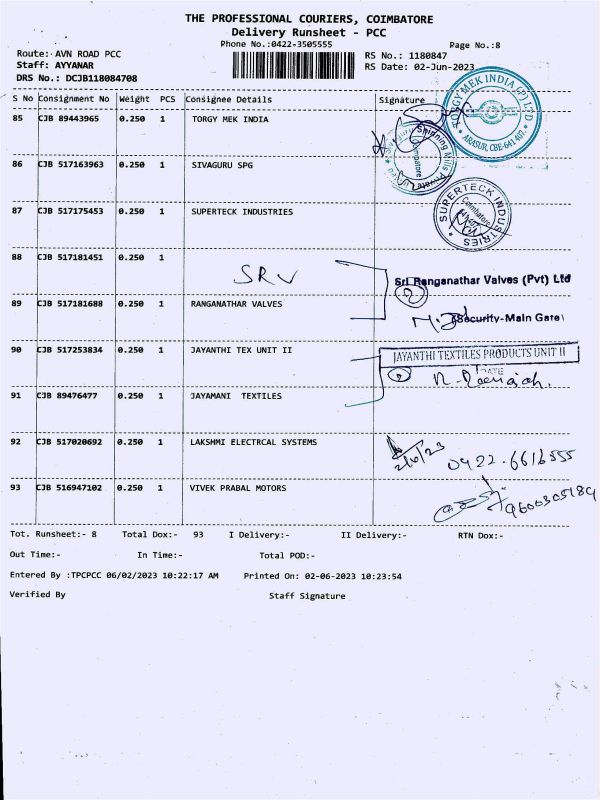 THE PROFESSIONAL COURIERS, COIMBATORE
Delivery Runsheet - PCC
Phone No.:0422-3505555
Page No.:8
Route: AVN ROAD PCC
RS No.: 1180847
Staff: AYYANAR
RS Date: 02-Jun-2023
DRS No.: DCJB118084708
S No Consignment No Weight PCS Consignee Details Signature
85 CJB 89443965 0.250 1 TORGY MEK INDIA
TORGY MEK INDIA (P) LTD
ARASUR, CBE-641 407.
Spinning Mills Private
Coimbatore
86 CJB 517163963 0.250 1 SIVAGURU SPG
87 CJB 517175453 0.250 1 SUPERTECK INDUSTRIES
SUPERTECK INDUSTRIES
Coimbatore
88 CJB 517181451 0.250 1
SRV
Sri Ranganathar Valves (Pvt) Ltd
89 CJB 517181688 0.250 1 RANGANATHAR VALVES
(Security-Main Gate)
90 CJB 517253834 0.250 1 JAYANTHI TEX UNIT II
JAYANTHI TEXTILES PRODUCTS UNIT II
DATE
91 CJB 89476477 0.250 1 JAYAMANI TEXTILES
92 CJB 517020692 0.250 1 LAKSHMI ELECTRCAL SYSTEMS
2/6/23 0422.6616555
93 CJB 516947102 0.250 1 VIVEK PRABAL MOTORS
9600305189
Tot. Runsheet:- 8 Total Dox:- 93 I Delivery:- II Delivery:- RTN Dox:-
Out Time:- In Time:- Total POD:-
Entered By :TPCPCC 06/02/2023 10:22:17 AM Printed On: 02-06-2023 10:23:54
Verified By Staff Signature